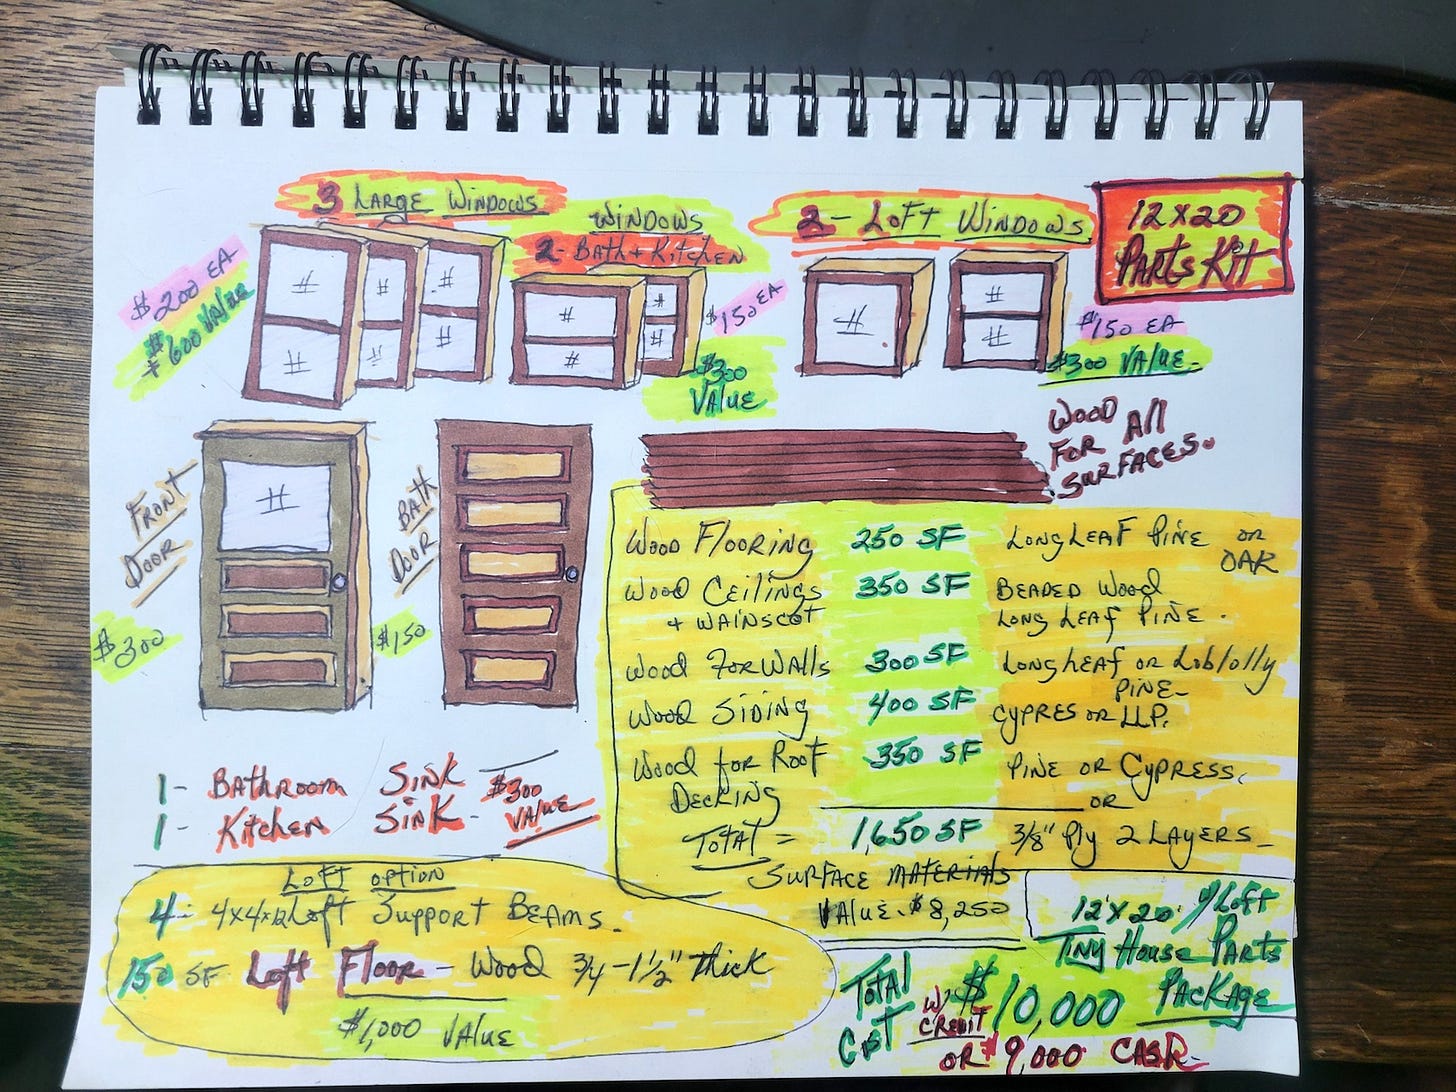 3 LARGE WINDOWS
$200 EA
$600 VALUE
WINDOWS
2- BATH + KITCHEN
$150 EA
$300
VALUE
2 - LOFT WINDOWS
$150 EA
$300 VALUE.
12 X 20
PARTS KIT
FRONT
DOOR
$300
BATH
DOOR
$150
WOOD
FOR All
SURFACES.
WOOD FLOORING 250 SF LONGLEAF PINE OR
OAK
WOOD CEILINGS 350 SF BEADED WOOD
+ WAINSCOT LONG LEAF PINE.
WOOD FOR WALLS 300 SF LONGLEAF OR Loblolly
PINE-
WOOD SIDING 400 SF CYPRES OR LLP.
WOOD for ROOF 350 SF PINE OR CYPRESS,
DECKING OR
TOTAL = 1,650 SF 3/8" Ply 2 LAYERS-
SURFACE MATERIALS
VALUE. $8,250
1- BATHROOM SINK
1- KITCHEN SINK-
$300
VALUE
LOFT OPTION
4- 4x4x12 Loft SUPPORT BEAMS.
150 SF LOFT FLOOR - WOOD 3/4 -1 1/2" thick
$1,000 VALUE
12' X 20' w/LOFT
TINY HOUSE PARTS
PACKAGE
TOTAL
COST
W/
CREDIT
$10,000
OR $9,000 CASH-